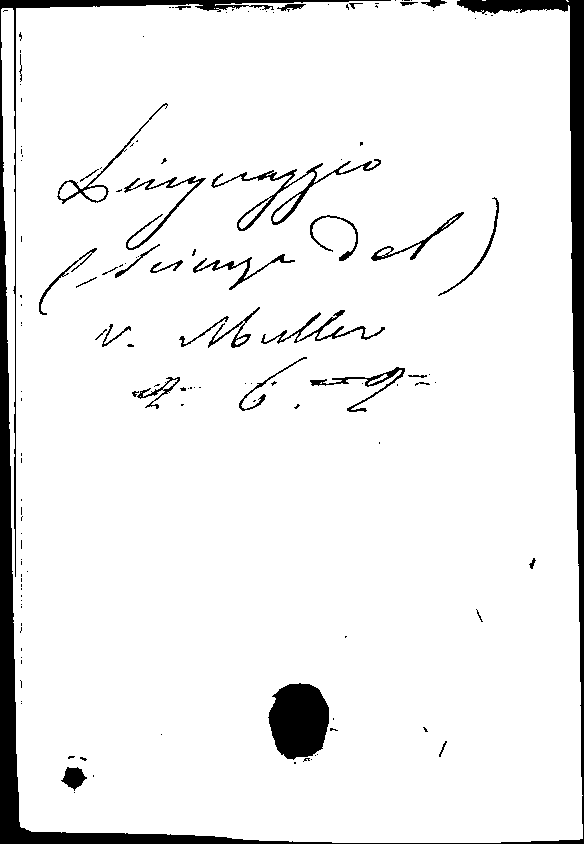 Linguaggio
(scienza del)
v. Muller
2. 6. 2